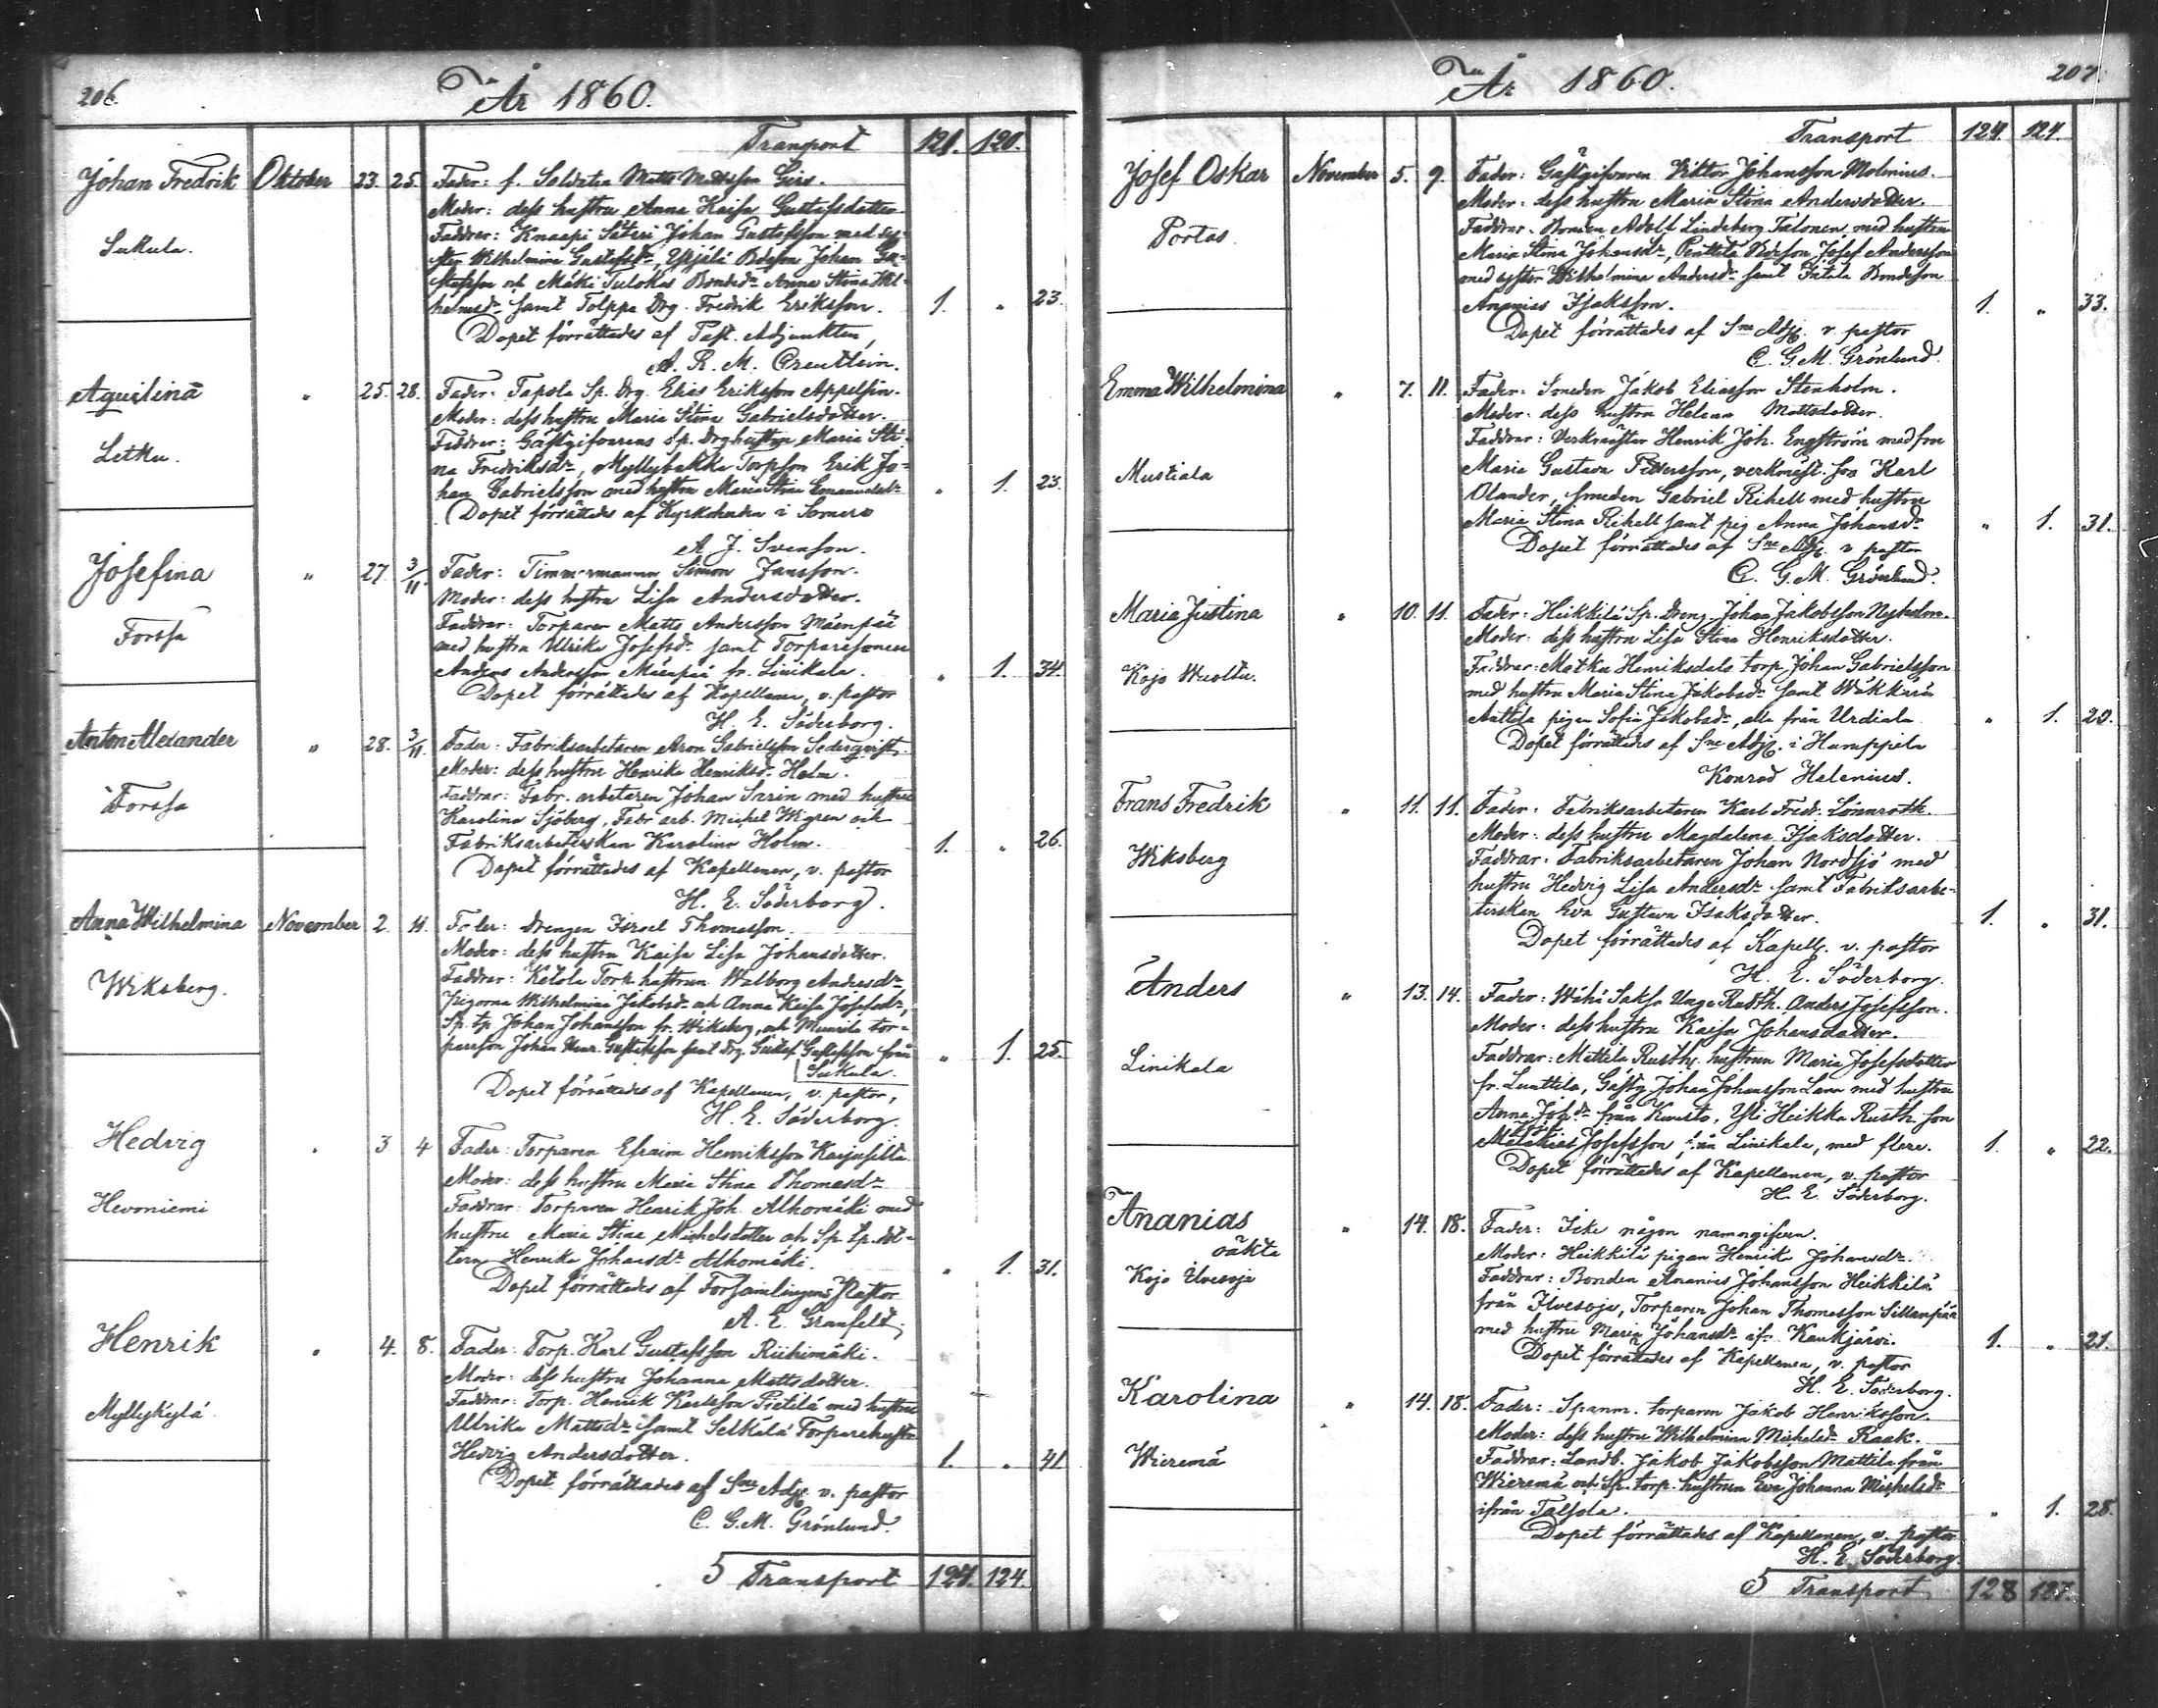 206.
År 1860.
Transport 121. 120.
Johan Fredrik Oktober 23. 25. Fader: f. Soldaten Matts Mattsson Girs.
Moder: dess hustru Anna Kaisa Gustafsdotter
Sukula.
Faddrar: Knaapi Säteri Johan Gustafsson med
Wilhelmina Gustafsdr, Johan Gu-
stafsson och Mäki Tulokas Anna Stina Wil-
helmsdr samt Tolppa Drg. Fredrik Eriksson. 1. " 23.
Dopet förrättades af Past. Adjunkten,
A. R. M. Creutlein.
Aquilina " 25. 28. Fader: Tapola Sp. Drg. Elias Eriksson Appelsin.
Moder: dess hustru Maria Stina Gabrielsdotter.
Letku.
Faddrar: Gästgifvarens Sp. Drghustru Maria Sti-
na Fredriksdr, Myllybakka Torpson Erik Jo-
han Gabrielsson med hustru Maria Stina Emanuelsdr " 1. 23.
Dopet förrättades af Kyrkoherden i Somero
A. J. Svenson.
Josefina " 27. 3/11. Fader: Timmermannen Simon Jansson.
Moder: dess hustru Lisa Andersdotter.
Forssa
Faddrar: Torparen Matts Andersson Mäenpää
med hustru Ulrika Josefsdr samt Torparesonen
Anders Andersson Mäenpää fr. Linikala. " 1. 34.
Dopet förrättades af Kapellanen, v. pastor
H. E. Söderborg.
Anton Alexander " 28. 3/11. Fader: Fabriksarbetaren Aron Gabrielsson Sederqvist,
Moder: dess hustru Henrika Henriksdr Holm.
Forssa
Faddrar: Fabr. arbetaren Johan Sarin med hustru
Karolina Sjöberg, Fabr arb. Michel Wigren och
Fabriksarbeterskan Karolina Holm. 1. " 26.
Dopet förrättades af Kapellanen, v. pastor
H. E. Söderborg.
Anna Wilhelmina November 2. 11. Fader: Drengen Israel Thomasson.
Moder: dess hustru Kaisa Lisa Johansdotter.
Wiksberg.
Faddrar: Ketola Torp. hustrun Walborg Andersdr,
Pigorna Wilhelmina Jakobsdr och Anna Kaisa Josefsdr,
Sp. tp Johan Johansson fr. Wiksberg, och Munila tor-
pareson Johan Henr. Gustafsson samt Drg Gustaf Gustafsson från " 1. 25.
Sukula.
Dopet förrättades af Kapellanen, v. pastor,
H. E. Söderborg.
Hedvig " 3 4 Fader: Torparen Efraim Henriksson Karjusilta
Moder: dess hustru Maria Stina Thomasdr
Hevoniemi
Faddrar: Torparen Henrik Joh. Alhomäki med
hustru Maria Stina Michelsdotter och Sp. tp. dot-
tern Henrika Johansdr Alhomäki. " 1. 31.
Dopet förrättades af Församlingens Pastor
A. E. Granfelt.
Henrik " 4. 8. Fader: Torp. Karl Gustafsson Riihimäki.
Moder: dess hustru Johanna Mattsdotter.
Myllykylä
Faddrar: Torp. Henrik Karlsson Pietilä med hustru
Ulrika Mattsdr samt Selkälä Torparehustr.
Hedvig Andersdotter. 1. " 41.
Dopet förrättades af Sne Adj. v. pastor
C. G. M. Grönlund.
5 Transport 124. 124.
207.
År 1860.
Transport 124. 124.
Josef Oskar November 5. 9. Fader: Gästgifvaren Viktor Johansson Molinius.
Moder: dess hustru Maria Stina Andersdotter.
Portas
Faddrar: Bonden Adolf Lindeberg Talonen med hustru
Maria Stina Johansdr, Penttilä Josef Andersson
med syster Wilhelmina Andersdr samt Intala Bondeson
Ananias Isaksson. 1. " 33.
Dopet förrättades af Sne Adj. v. pastor
C. G. M. Grönlund.
Emma Wilhelmina " 7. 11. Fader: Smeden Jakob Eliasson Stenholm.
Moder: dess hustru Helena Mattsdotter.
Mustiala
Faddrar: Verkmäster Henrik Joh. Engström med fru
Maria Gustava Pettersson, verkmäst. Karl
Olander, smeden Gabriel Rihell med hustru
Maria Stina Rihell samt pig Anna Johansdr " 1. 31.
Dopet förrättades af Sne Adj. v pastor
C. G. M. Grönlund.
Maria Justina " 10. 11. Fader: Heikkilä Sp. Dreng Johan Jakobsson Nyholm.
Moder: dess hustru Lisa Stina Henriksdotter.
Kojo Wuolta.
Faddrar: Matku Henriksdals torp. Johan Gabrielsson
med hustru Maria Stina Jakobsdr samt
Anttila pigan Sofia Jakobsdr, alla från Urdiala " 1. 20.
Dopet förrättades af Sne Adj. i Humppila
Konrad Helenius.
Frans Fredrik " 11. 11. Fader: Fabriksarbetaren Karl Fredr. Lönnroth.
Moder: dess hustru Magdalena Isaksdotter.
Wiksberg
Faddrar: Fabriksarbetaren Johan Nordsjö med
hustru Hedvig Lisa Andersdr samt Fabriksarbe-
terskan Eva Gustava Isaksdotter. 1. " 31.
Dopet förrättades af Kapell. v. pastor
H. E. Söderborg.
Anders " 13. 14. Fader: Wähä Saksa Unge Rusth. Anders Josefsson.
Moder: dess hustru Kaisa Johansdotter.
Linikala
Faddrar: Mattila Rusth. hustrun Maria Josefsdotter
fr. Lunttila, Gästg. Johan Johansson med hustru
Anna Joh.dr från Kuusto, Yli Heikka Rusth. son
Malakias Josefsson, från Linikala, med flere. 1. " 22.
Dopet förrättades af Kapellanen, v. pastor
H. E. Söderborg.
Ananias " 14. 18. Fader: Icke någon namngifven.
oäkta
Moder: Heikkilä pigan Henrika Johansdr.
Kojo Ilvesoja
Faddrar: Bonden Ananias Johansson Heikkilä
från Ilvesoja, Torparen Johan Thomasson Sillanpää
med hustru Maria Johansdr ifr. Kaukjärvi. 1. " 21.
Dopet förrättades af Kapellanen, v. pastor
H. E. Söderborg.
Karolina " 14. 18. Fader: Spanm. torparen Jakob Henriksson.
Moder: dess hustru Wilhelmina Michelsdr Raak.
Wieremä
Faddrar: Landb. Jakob Jakobsson Mattila från
Wieremä och Sp. torp. hustrun Eva Johanna Michelsdr
ifrån Talsola. " 1. 28.
Dopet förrättades af Kapellanen, v. pastor
H. E. Söderborg.
5 Transport 128 127.